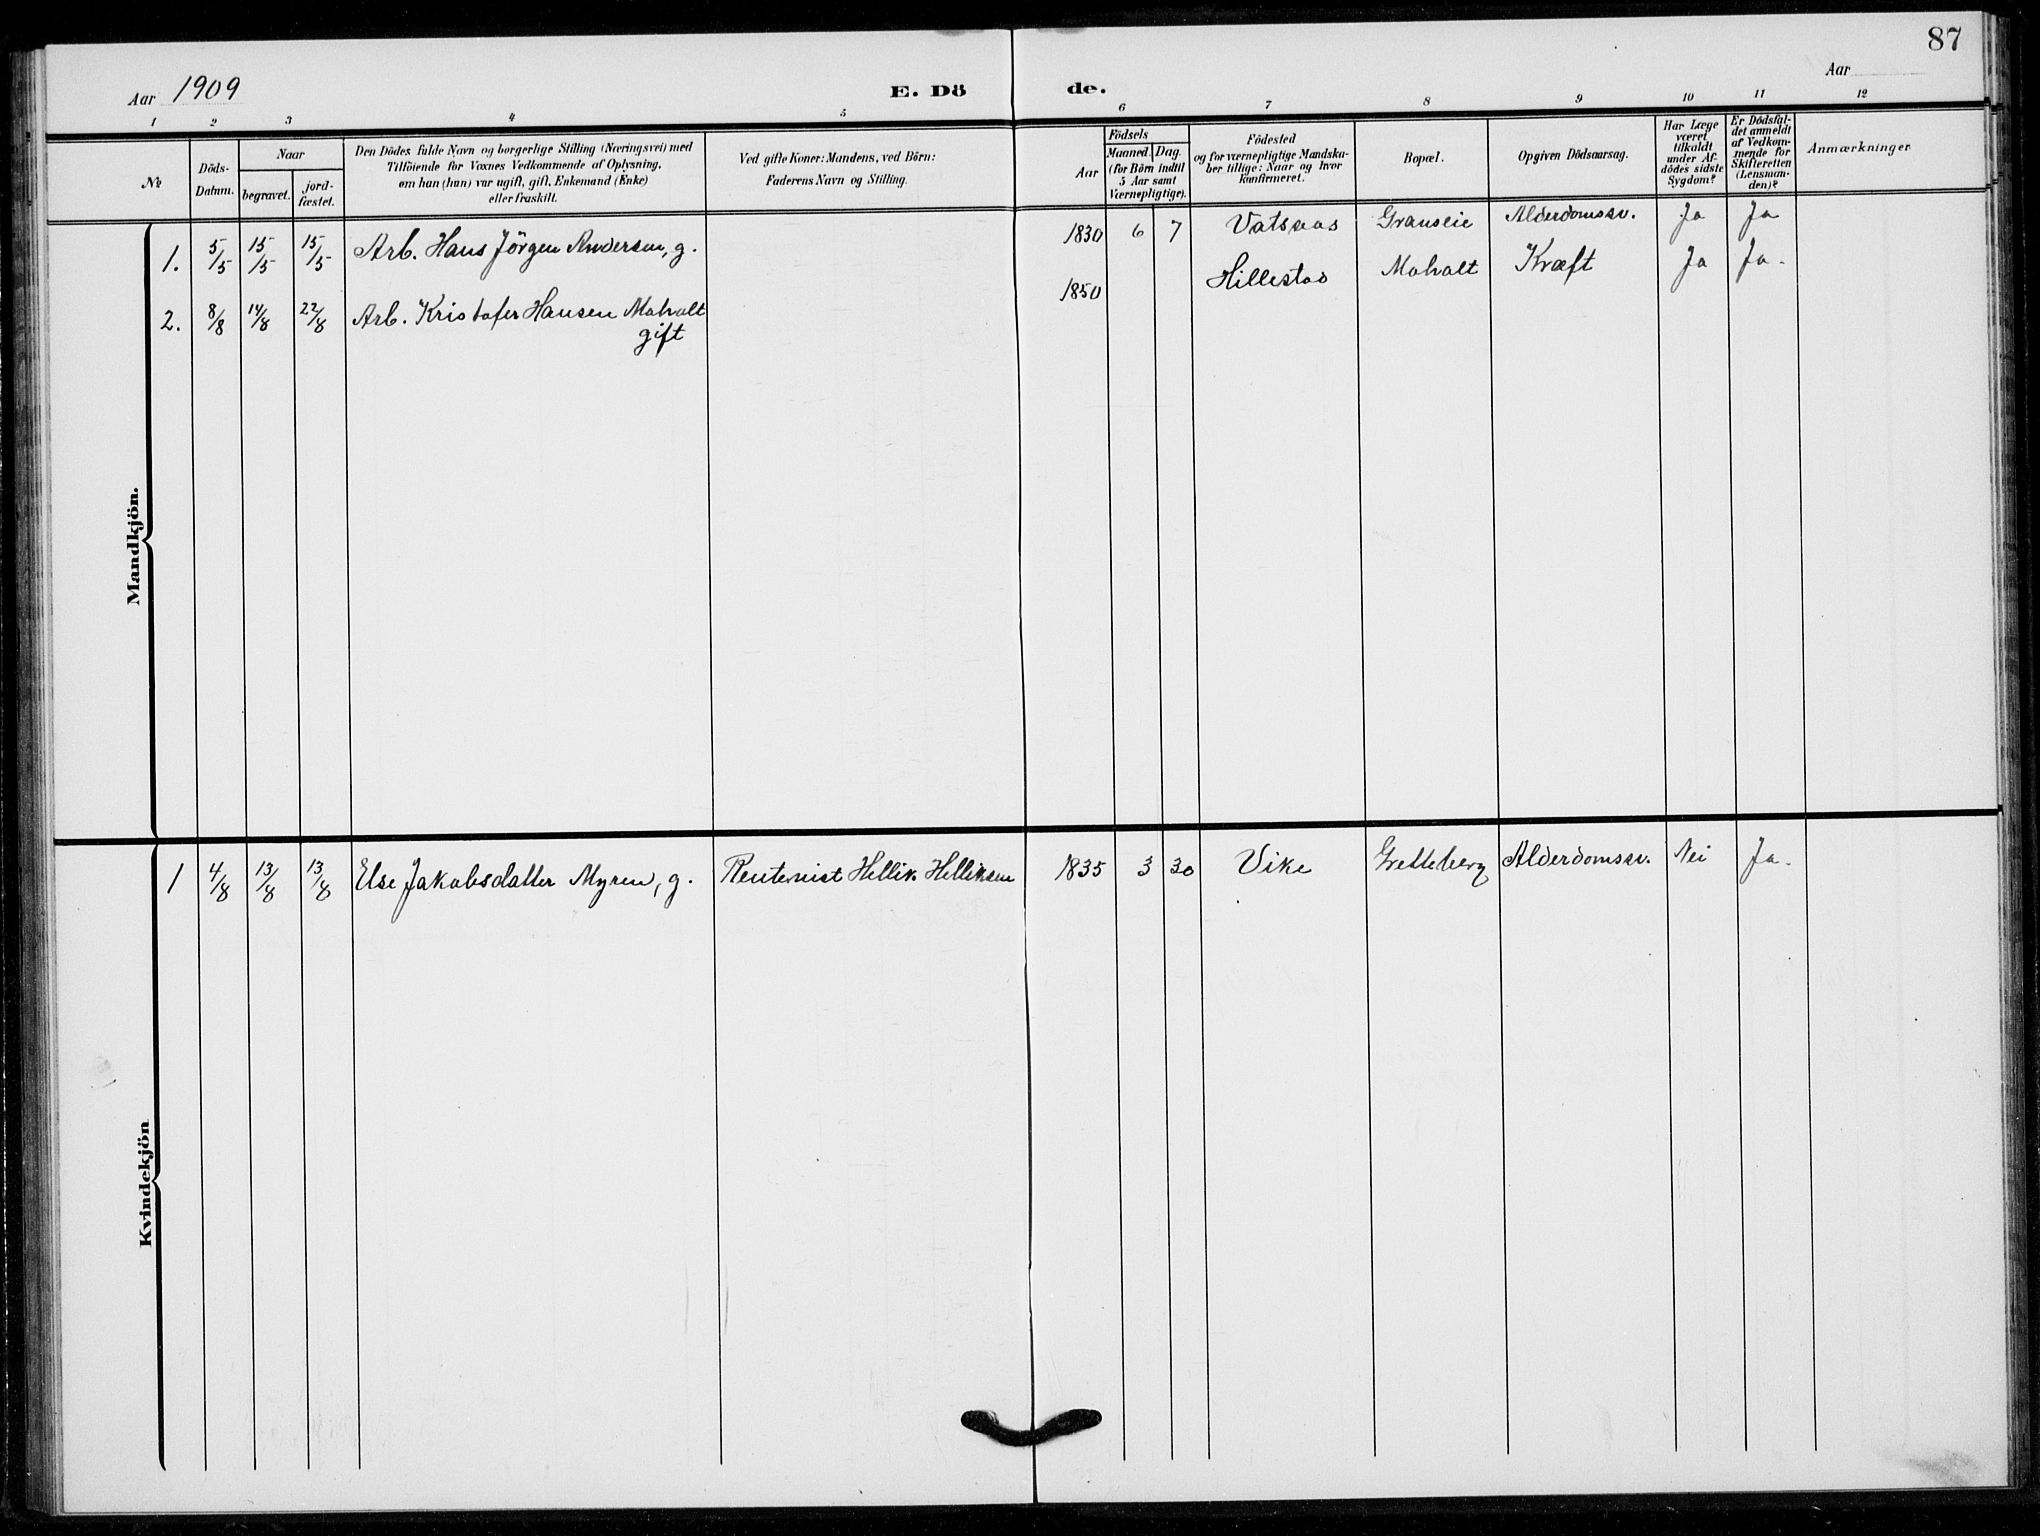 87
Aar 1909 E. Dö de. Aar
1 2 3 4 5 6 7 8 9 10 11 12
№
Döds-
Datum.
Naar
begravet.
jord-
fæstet.
Den Dödes fulde Navn og borgerlige Stilling (Næringsvei) med
Tilföiende for Voxnes Vedkommende af Oplysning,
om han (hun) var ugift, gift, Enkemand (Enke)
eller fraskilt.
Ved gifte Koner: Mandens, ved Börn:
Faderens Navn og Stilling.
Aar
Födsels
Maaned. Dag.
(for Börn indtil
5 Aar samt
Værnepligtige).
Födested
og for værnepligtige Mandska-
ber tillige: Naar og hvor
konfirmeret.
Bopæl.
Opgiven Dödsaarsag.
Har Læge
været
tilkaldt
under Af-
dödes sidste
Sygdom?
Er Dödsfal-
det anmeldt
af Vedkom-
mende for
Skifteretten
(Lensman-
den)?
Anmærkninger
Mandkjön.
1. 5/5 15/5 15/5 Arb. Hans Jörgen Andersen, g. 1830 6 7 Vatsaas Granseie Alderdomssv. Ja Ja
2. 8/8 14/8 22/8 Arb. Kristofer Hansen Moholt 1850 Hillestad Moholt Kræft Ja Ja.
gift
Kvindekjön
1 4/8 13/8 13/8 Else Jakobsdatter Myren, g. Rentenist Hellik Helliksen 1835 3 30 Vike Gretteberg Alderdomssv. Nei Ja.